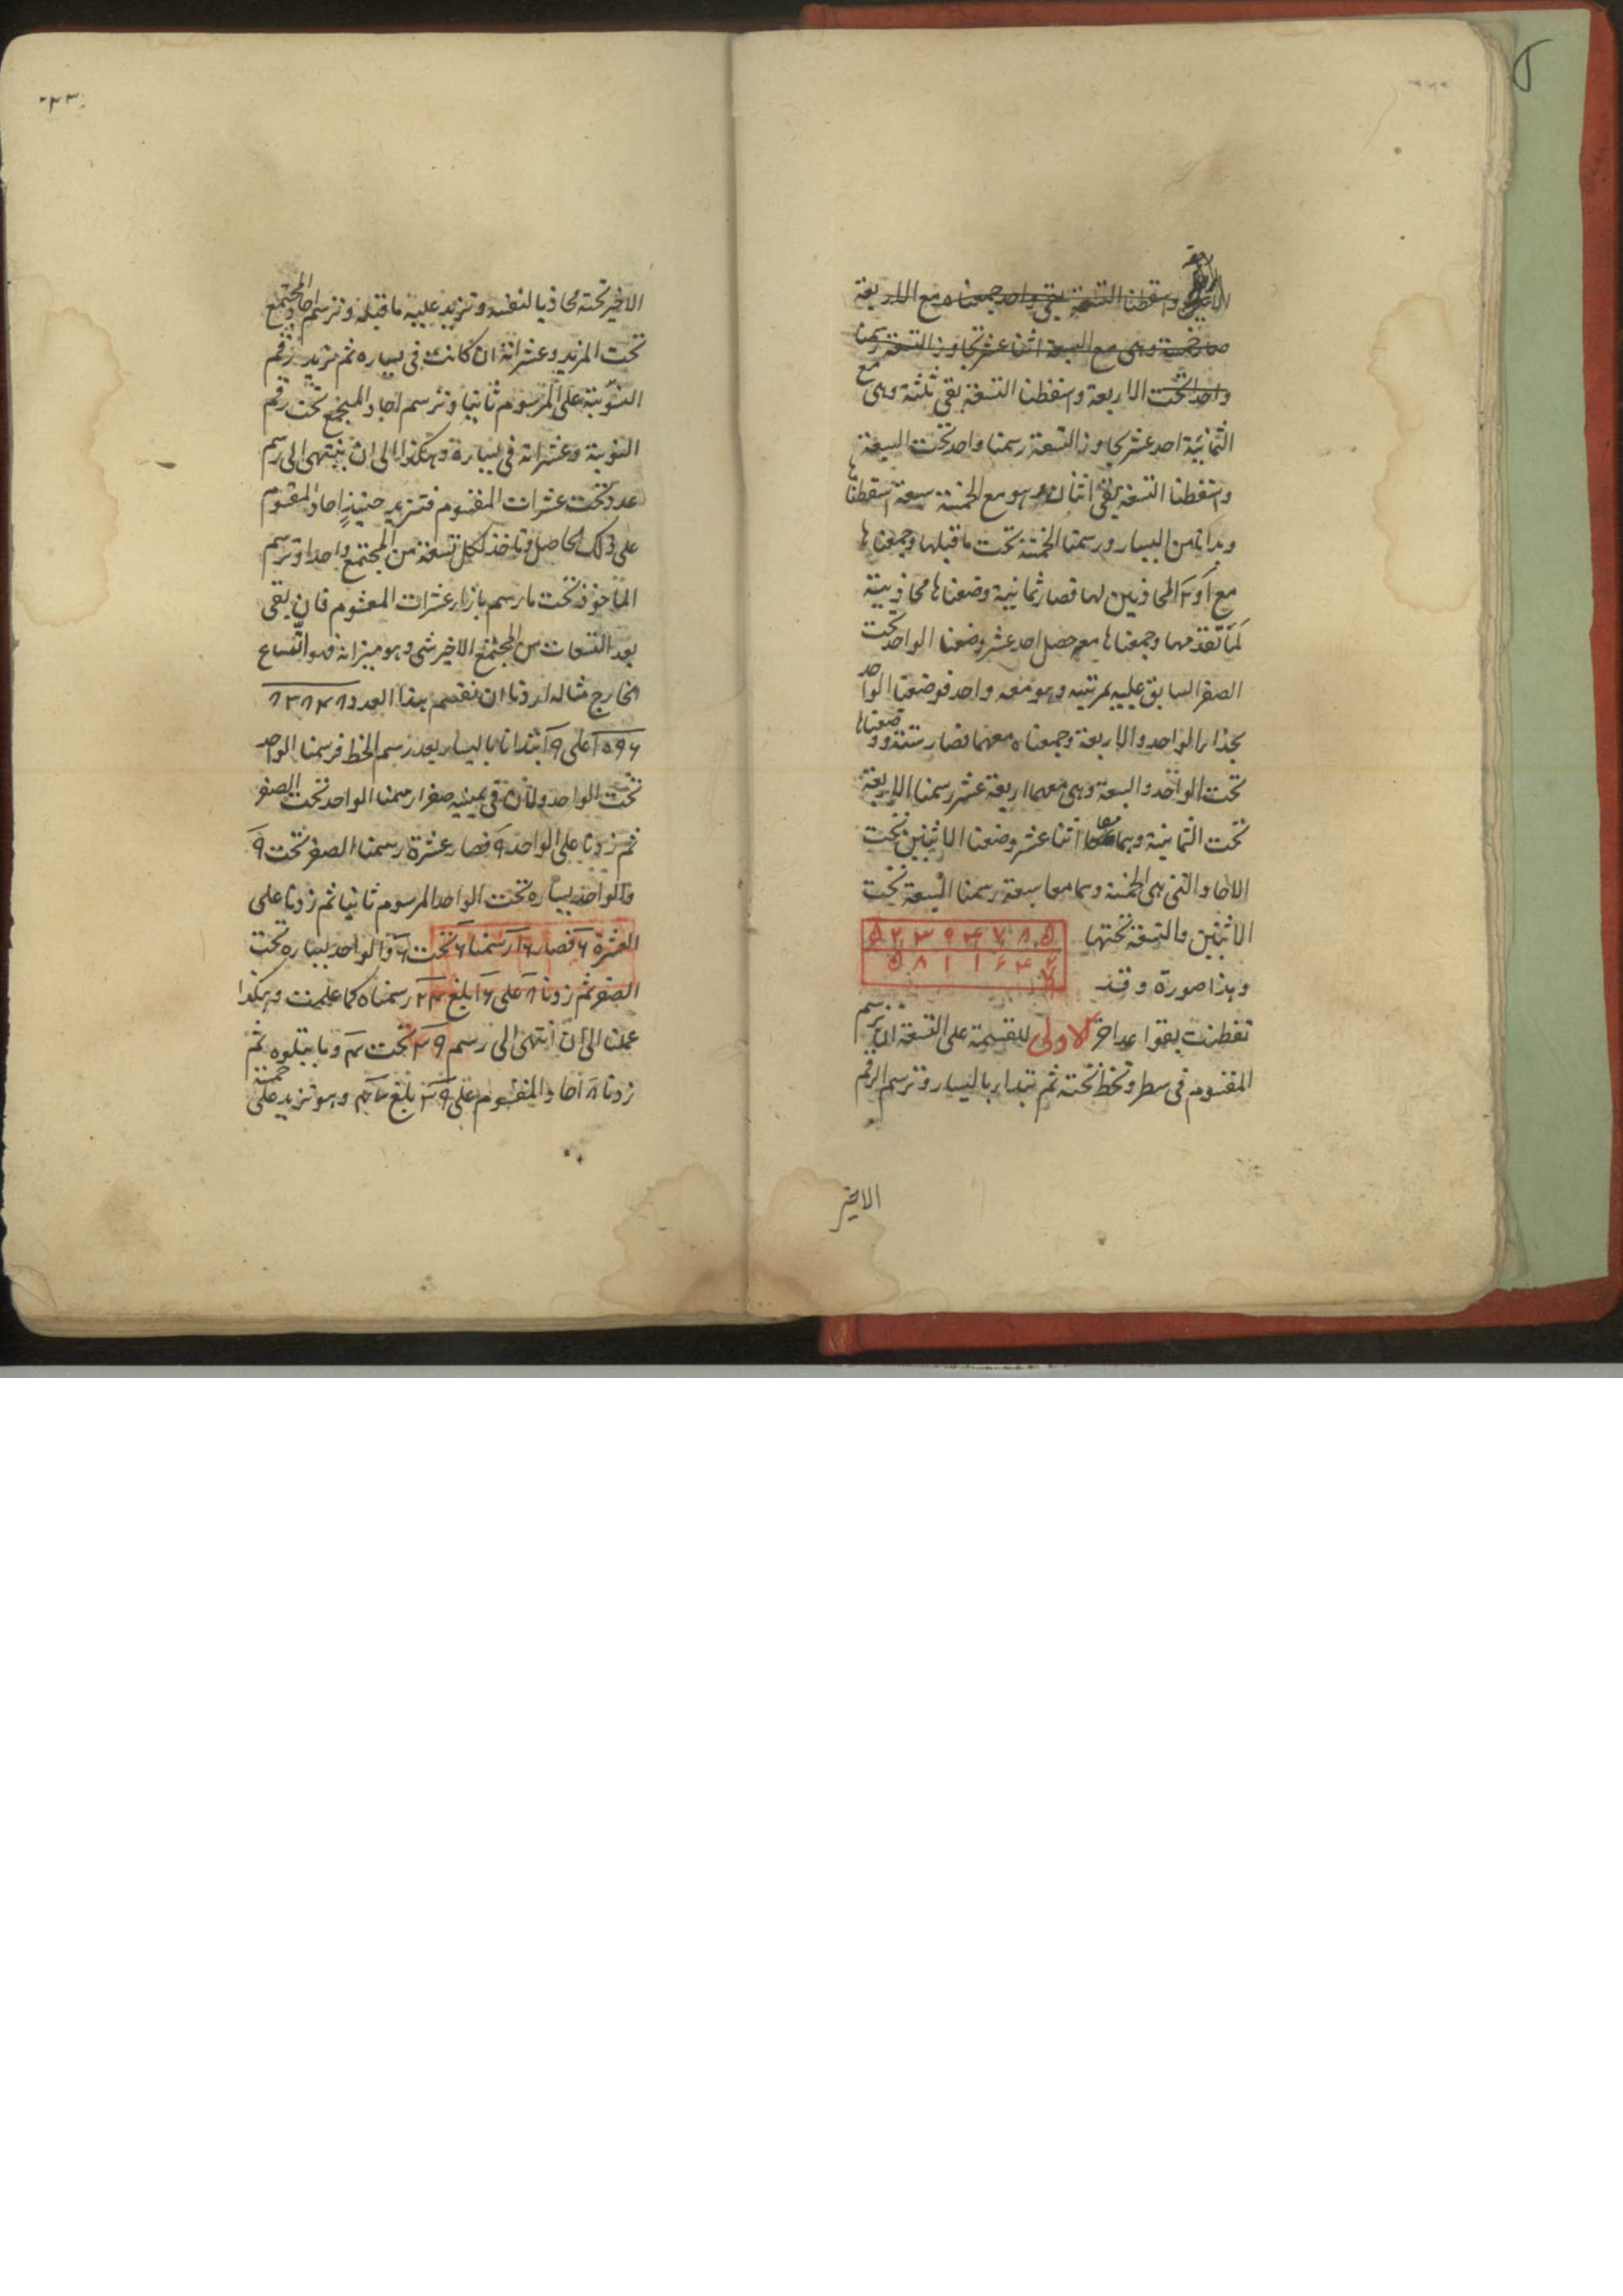 الاربعة واسقطنا التسعة بقي واحد جمعناه مع الاربعة
صار خمسة وهى مع السبعة اثنا عشر تجاوز التسعة رسمنا
واحدا تحت الاربعة واسقطنا التسعة بقى ثلثة وهى مع
الثمانية احد عشر تجاوز التسعة رسمنا واحد تحت السبعة
واسقطنا التسعة بقى اثنان وهو مع الخمسة سبعة اسقطناها
وبدأنا من اليسار ورسمنا الخمسة تحت ما قبلها وجمعناها
مع ا و ٢ المحاذيين لها فصار ثمانية وضعناها محاذيية
لما تقدمها وجمعناها معه حصل احد عشر وضعنا الواحد تحت
الصفر السابق عليه بمرتبة وهو معه واحد فوضعنا الواحد
بحذاء الواحد والاربعة وجمعناه معهما فصار ستة ووضعناها
تحت الواحد والسبعة وهى معهما اربعة عشر رسمنا الاربعة
تحت الثمانية وهما معا اثنا عشر وضعنا الاثنين تحت
الاحاد التى هى الخمسة وهما معا سبعة رسمنا السبعة تحت
الاثنين والتسعة تحتها
وهذا صورة وقد
تفطنت بقواعد اخر الاولى للقسمة على التسعة ان ترسم
المقسوم فى سطر وتخط تحته ثم تبتدأ باليسار وترسم الرقم
الاخير
الاخير تحته محاذيا لنفسه وتزيد عليه ما قبله وترسم احاد المجتمع
تحت المزيد وعشراته ان كانت فى يساره ثم تزيد رقم
النوبة على المرسوم ثانيا وترسم احاد المجتمع تحت رقم
النوبة وعشراته فى يساره وهكذا الى ان ينتهى الى رسم
عدد تحت عشرات المقسوم فتزيد حينئذ احاد المقسوم
على ذلك الحاصل وتاخذ لكل تسعة من المجتمع واحدا وترسم
المأخوذ تحت ما رسم بازاء عشرات المقسوم فان بقى
بعد التسعات من المجتمع الاخير شى وهو ميزانه فهو اتساع
الخارج مثاله اردنا ان نقسم هذا العدد
على ٩ ابتدأنا باليسار بعد رسم الخط فرسمنا الواحد
تحت الواحد ولأن فى يمينه صفرا رسمنا الواحد تحت الصفر
ثم زدنا على الواحد ٩ فصار عشرة رسمنا الصفر تحت ٩
والواحد بيساره تحت الواحد المرسوم ثانيا ثم زدنا على
العشرة ٦ فصار ١٦ رسمنا ٦ تحت ٦ والواحد بيساره تحت
الصفر ثم زدنا ٨ على ١٦ بلغ ٢٤ رسمناه كما علمت وهكذا
عملنا الى ان انتهى الى رسم ٣٩ تحت ٣ وما يتلوه ثم
زدنا ٨ احاد المقسوم على ٣٩ بلغ ٤٧ وهو تزيد على خمسة